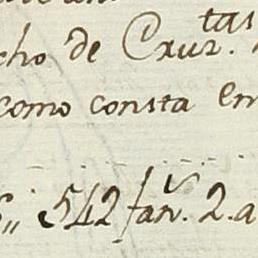 cho de Cxur.tas
como consta en
542 fan.s 2. a